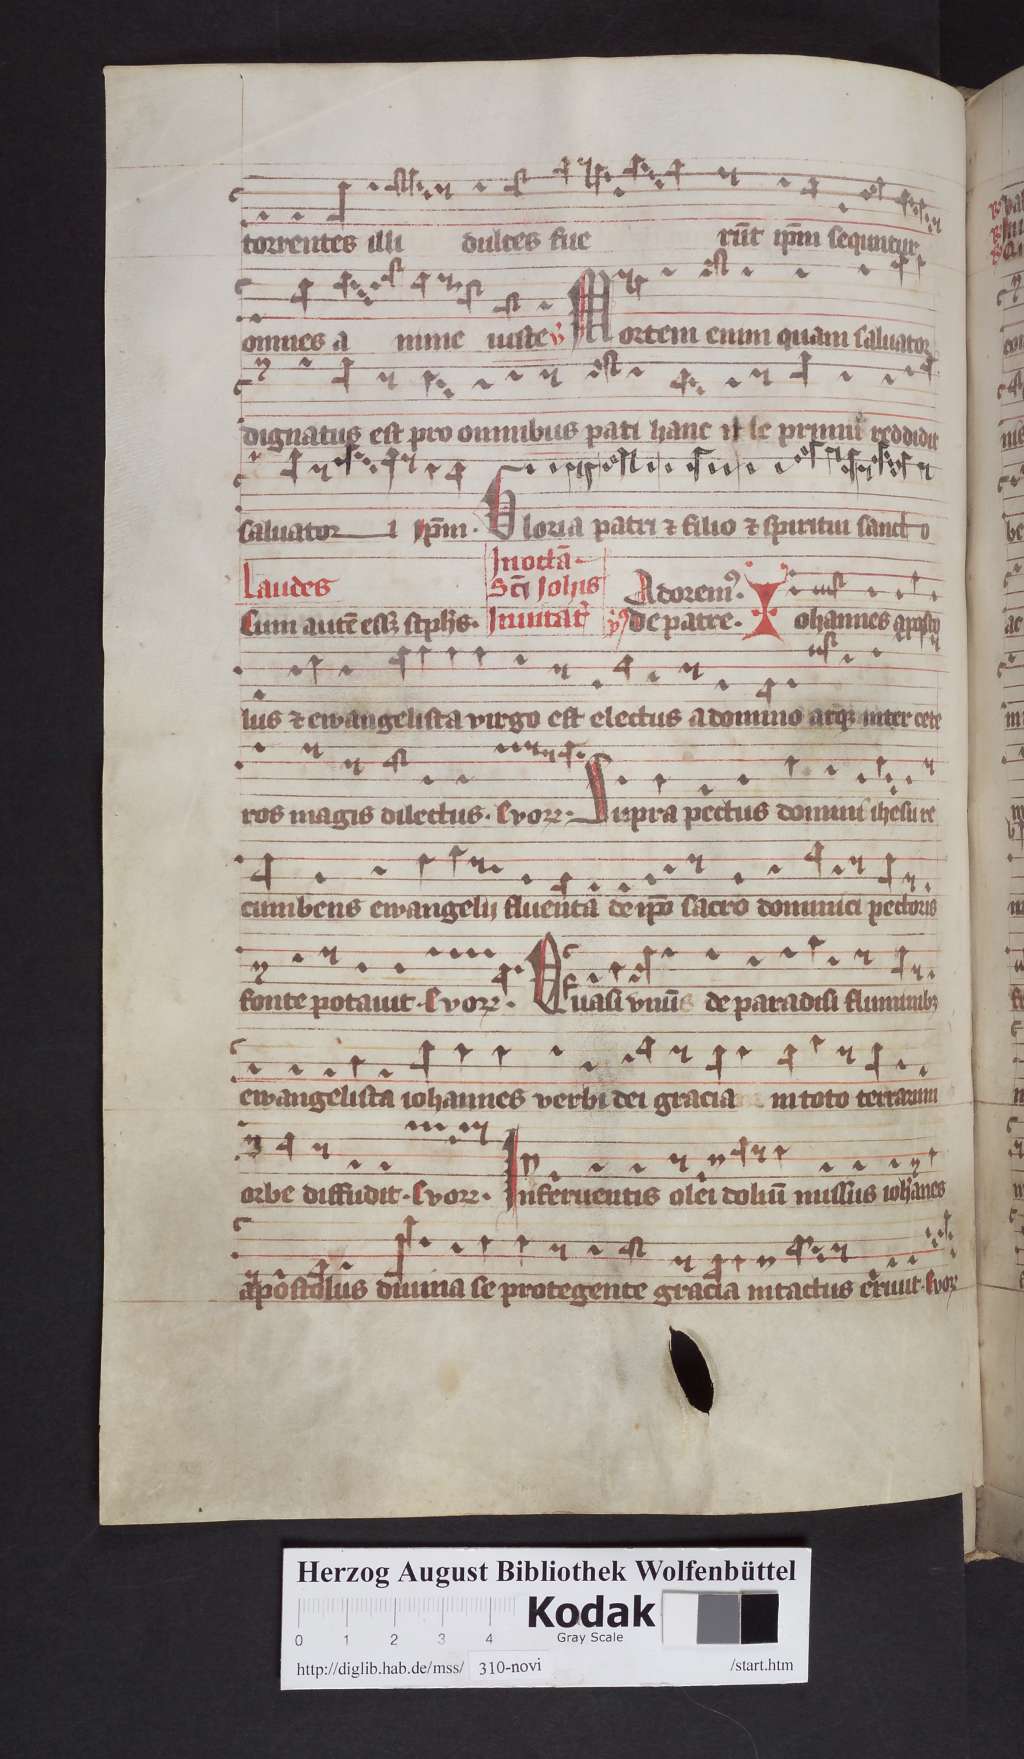 torrentes illi dulces fue rūt ip̄m sequntur
omnes a nime iuste ℣ Mortem enim quam saluator
dignatus est pro omnibus pati hanc il le primū reddidit
saluator i ip̄m · Gloria patri ⁊ filio ⁊ spiritui sancto
Laudes
In octā
Sc̄i Joh̄is
Adorem⁹ ·
Cum autē esꝫ stph̄s · Inuitat̄ p̄s⁹ de patre · Iohannes aposto
lus ⁊ ewangelista virgo est electus a domino atqꝫ inter cete
ros magis dilectus · Evorꝛ · Supra pectus domini ihesu re
cumbens ewangelij fluenta de ip̄o sacro dominici pectoris
fonte potauit · Evorꝛ · Quasi vnus de paradisi fluminibꝫ
ewangelista iohannes verbi dei gracia in toto terrarum
orbe diffudit · Evorꝛ · In feruentis olei doliū missus ioh̄anes
apostolus diuina se protegente gracia intactus exiuit · Evor
Herzog August Bibliothek Wolfenbüttel
Kodak
Gray Scale
0 1 2 3 4
http://diglib.hab.de/mss/ 310-novi /start.htm